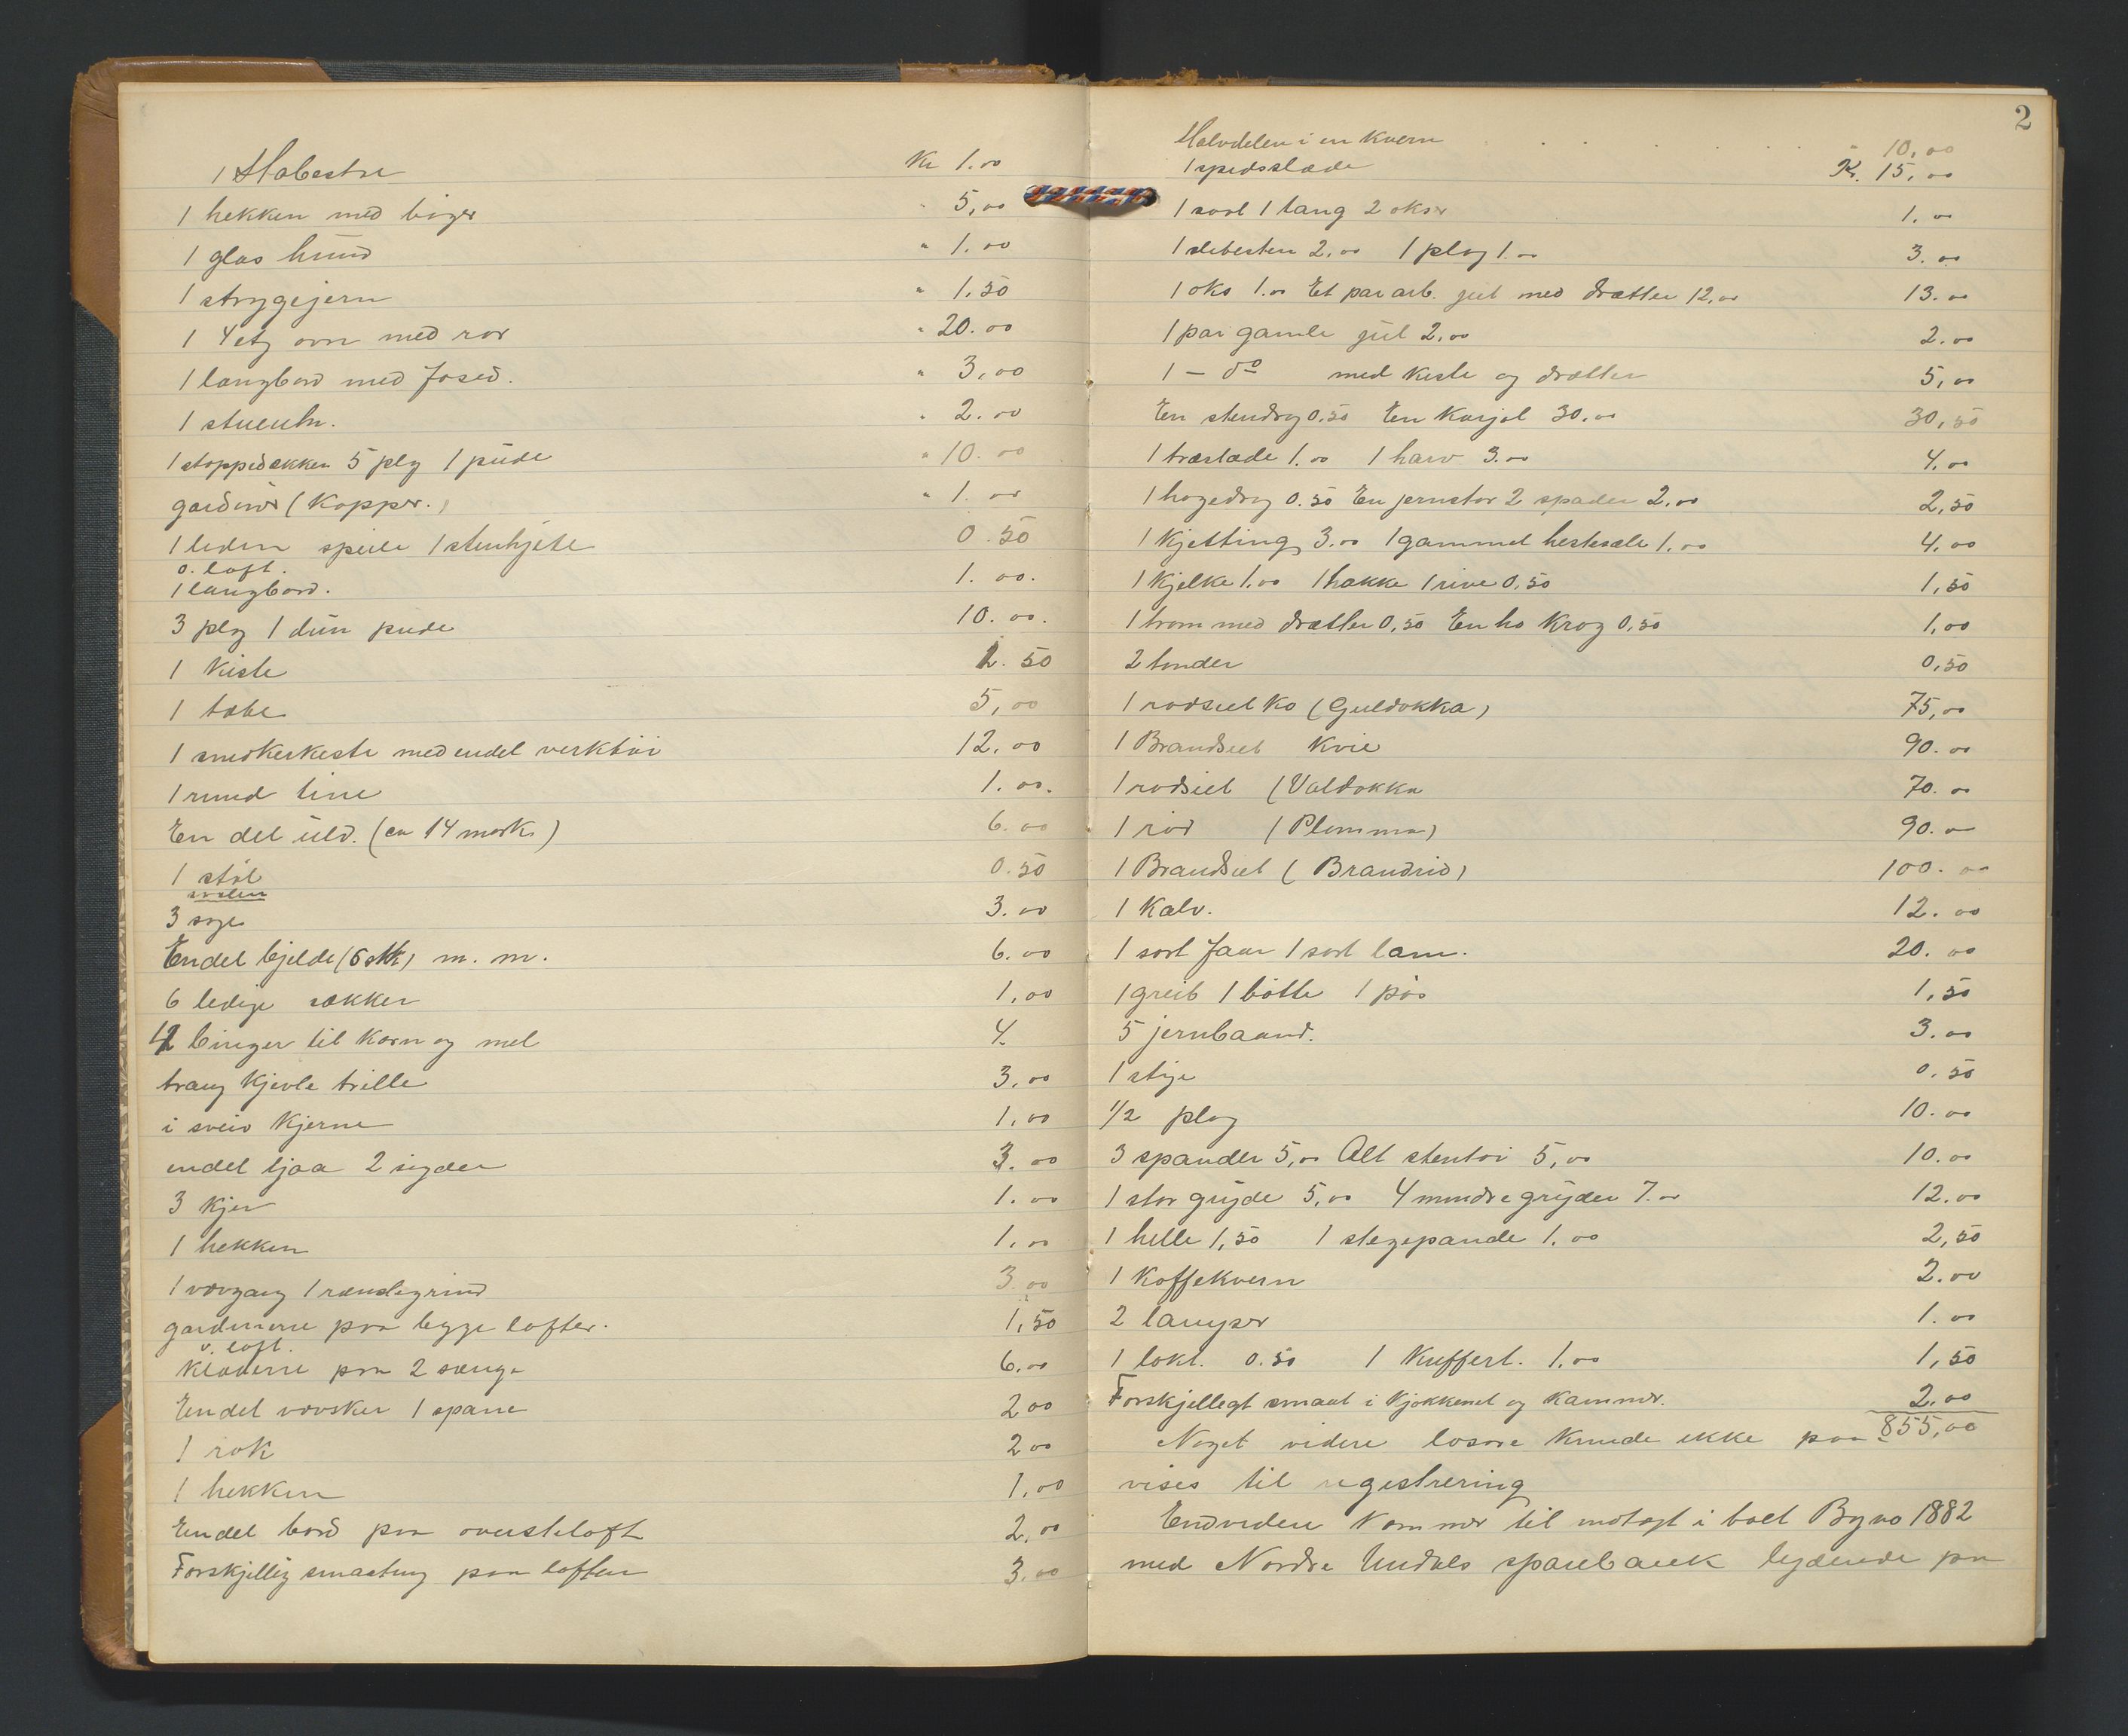 1 Stabestre Kr 1.00
1 hekken med bøger " 5,00
1 glas hund " 1.00
1 strygejern " 1.50
1 4 etg ovn med rør " 20.00
1 langbord med " 3,00
1 stueuhr. " 2.00
1 stoppedækken 5 plg 1 pude " 10.00
gardiner (Kopper.) " 1.00
1 speile 0.50
o. loft.
1 langbord. 1.00.
3 plg 1 dun pude 10.00.
1 Kiste 1.50
1 5,00
1 snedkerkeste med endel verktøi 12.00
1 rund tine 1.00.
En del uld. (ca 14 mark) 6.00
1 stol 0.50
svalen
3 3.00
Endel bjelde (6 stk) m. m. 6.00
6 ledige sækker 1,00
2 binger til Korn og mel 4.
traug Kjevle trille 3.00
1 sveiv Kjerne 1,00
endel ljaa 2 sigder 3.00
3 Kjer 1.00
1 hekken 1.00
1 vævgang 1 rendegrind 3.00
gardinerne paa begge lofter. 1,50
v. loft.
Klæderne paa 2 senge 6.00
Endel vævsker 1 spane 2 00
1 rok 2 00
1 hekken 1,00
Endel bord paa øversteloft 2.00
Forskjellig smaating paa loften 3.00
2
Halvdelen i en Kvern " 10,00
1 spidsslæde Kr. 15,00
1 tang 2 økser 1.00
1 slibesten 2,00 1 plog 1.00 3.00
1 øks 1.00 Et par arb. jul med drætter 12,00 13.00
1 par gamle jul 2,00 2.00
1 - do med kiste og drætter 5,00
En stendrog 0.50 En Karjol 30.00 30,50
1 træslæde 1.00 1 harv 3.00 4.00
1 hagedrog 0.50 En jernstør 2 spader 2.00 2,50
1 Kjetting 3.00 1 gammel hestesæle 1.00 4.00
1 Kjelke 1.00 1 hakke 1 rive 0,50 1,50
1 trom med drætter 0,50 En ho Krog 0,50 1,00
2 tønder 0,50
1 rødsiet Ko (Guldokka) 75,00
1 Brandsiet Kvie 90.00
1 rødsiet (Valdokka 70.00
1 rød (Plomma) 90.00
1 Brandsiet (Brandrid) 100.00
1 Kalv. 12.00
1 sort faar 1 sort lam. 20.00
1 greib 1 bøtte 1 pøs 1,50
5 jernbaand. 3.00
1 stige 0.50
1/2 plog 10.00
3 spander 5,00 Alt stentøi 5,00 10.00
1 stor gryde 5,00 4 mindre gryder 7.00 12.00
1 helle 1,50 1 stegepande 1.00 2,50
1 Kaffekvern 2.00
2 lamper 1.00
1 lokt. 0.50 1 Kuffert. 1.00 1,50
Forskjelligt smaat i Kjøkkenet og Kammer. 2.00
855,00
Noget videre løsøre kunde ikke paa-
vises til registrering
Endvidere kommer til indtægt i boet Bg no 1882
med Nordre Undals sparebank lydende paa